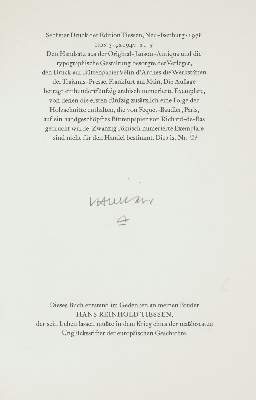 Sechster Druck der Edition Tiessen, Neu-Isenburg · 1978
Den Handsatz aus der Original-Janson-Antiqua und die
typographische Gestaltung besorgte der Verleger,
den Druck auf Büttenpapier Vélin d'Arches die Werkstätten
der Trajanus-Presse, Frankfurt am Main. Die Auflage
beträgt einhundertfünfzig arabisch numerierte Exemplare,
von denen die ersten fünfzig zusätzlich eine Folge der
Holzschnitte enthalten, die von Féquet-Baudier, Paris,
auf ein handgeschöpftes Büttenpapier von Richard-de-Bas
gedruckt wurde. Zwanzig römisch numerierte Exemplare
sind nicht für den Handel bestimmt. Dies ist Nr.
Dieses Buch entstand im Gedenken an meinen Bruder
HANS REINHOLD TIESSEN,
der sein Leben lassen mußte in dem Krieg eines der maßlosesten
Unglücksstifter der europäischen Geschichte.